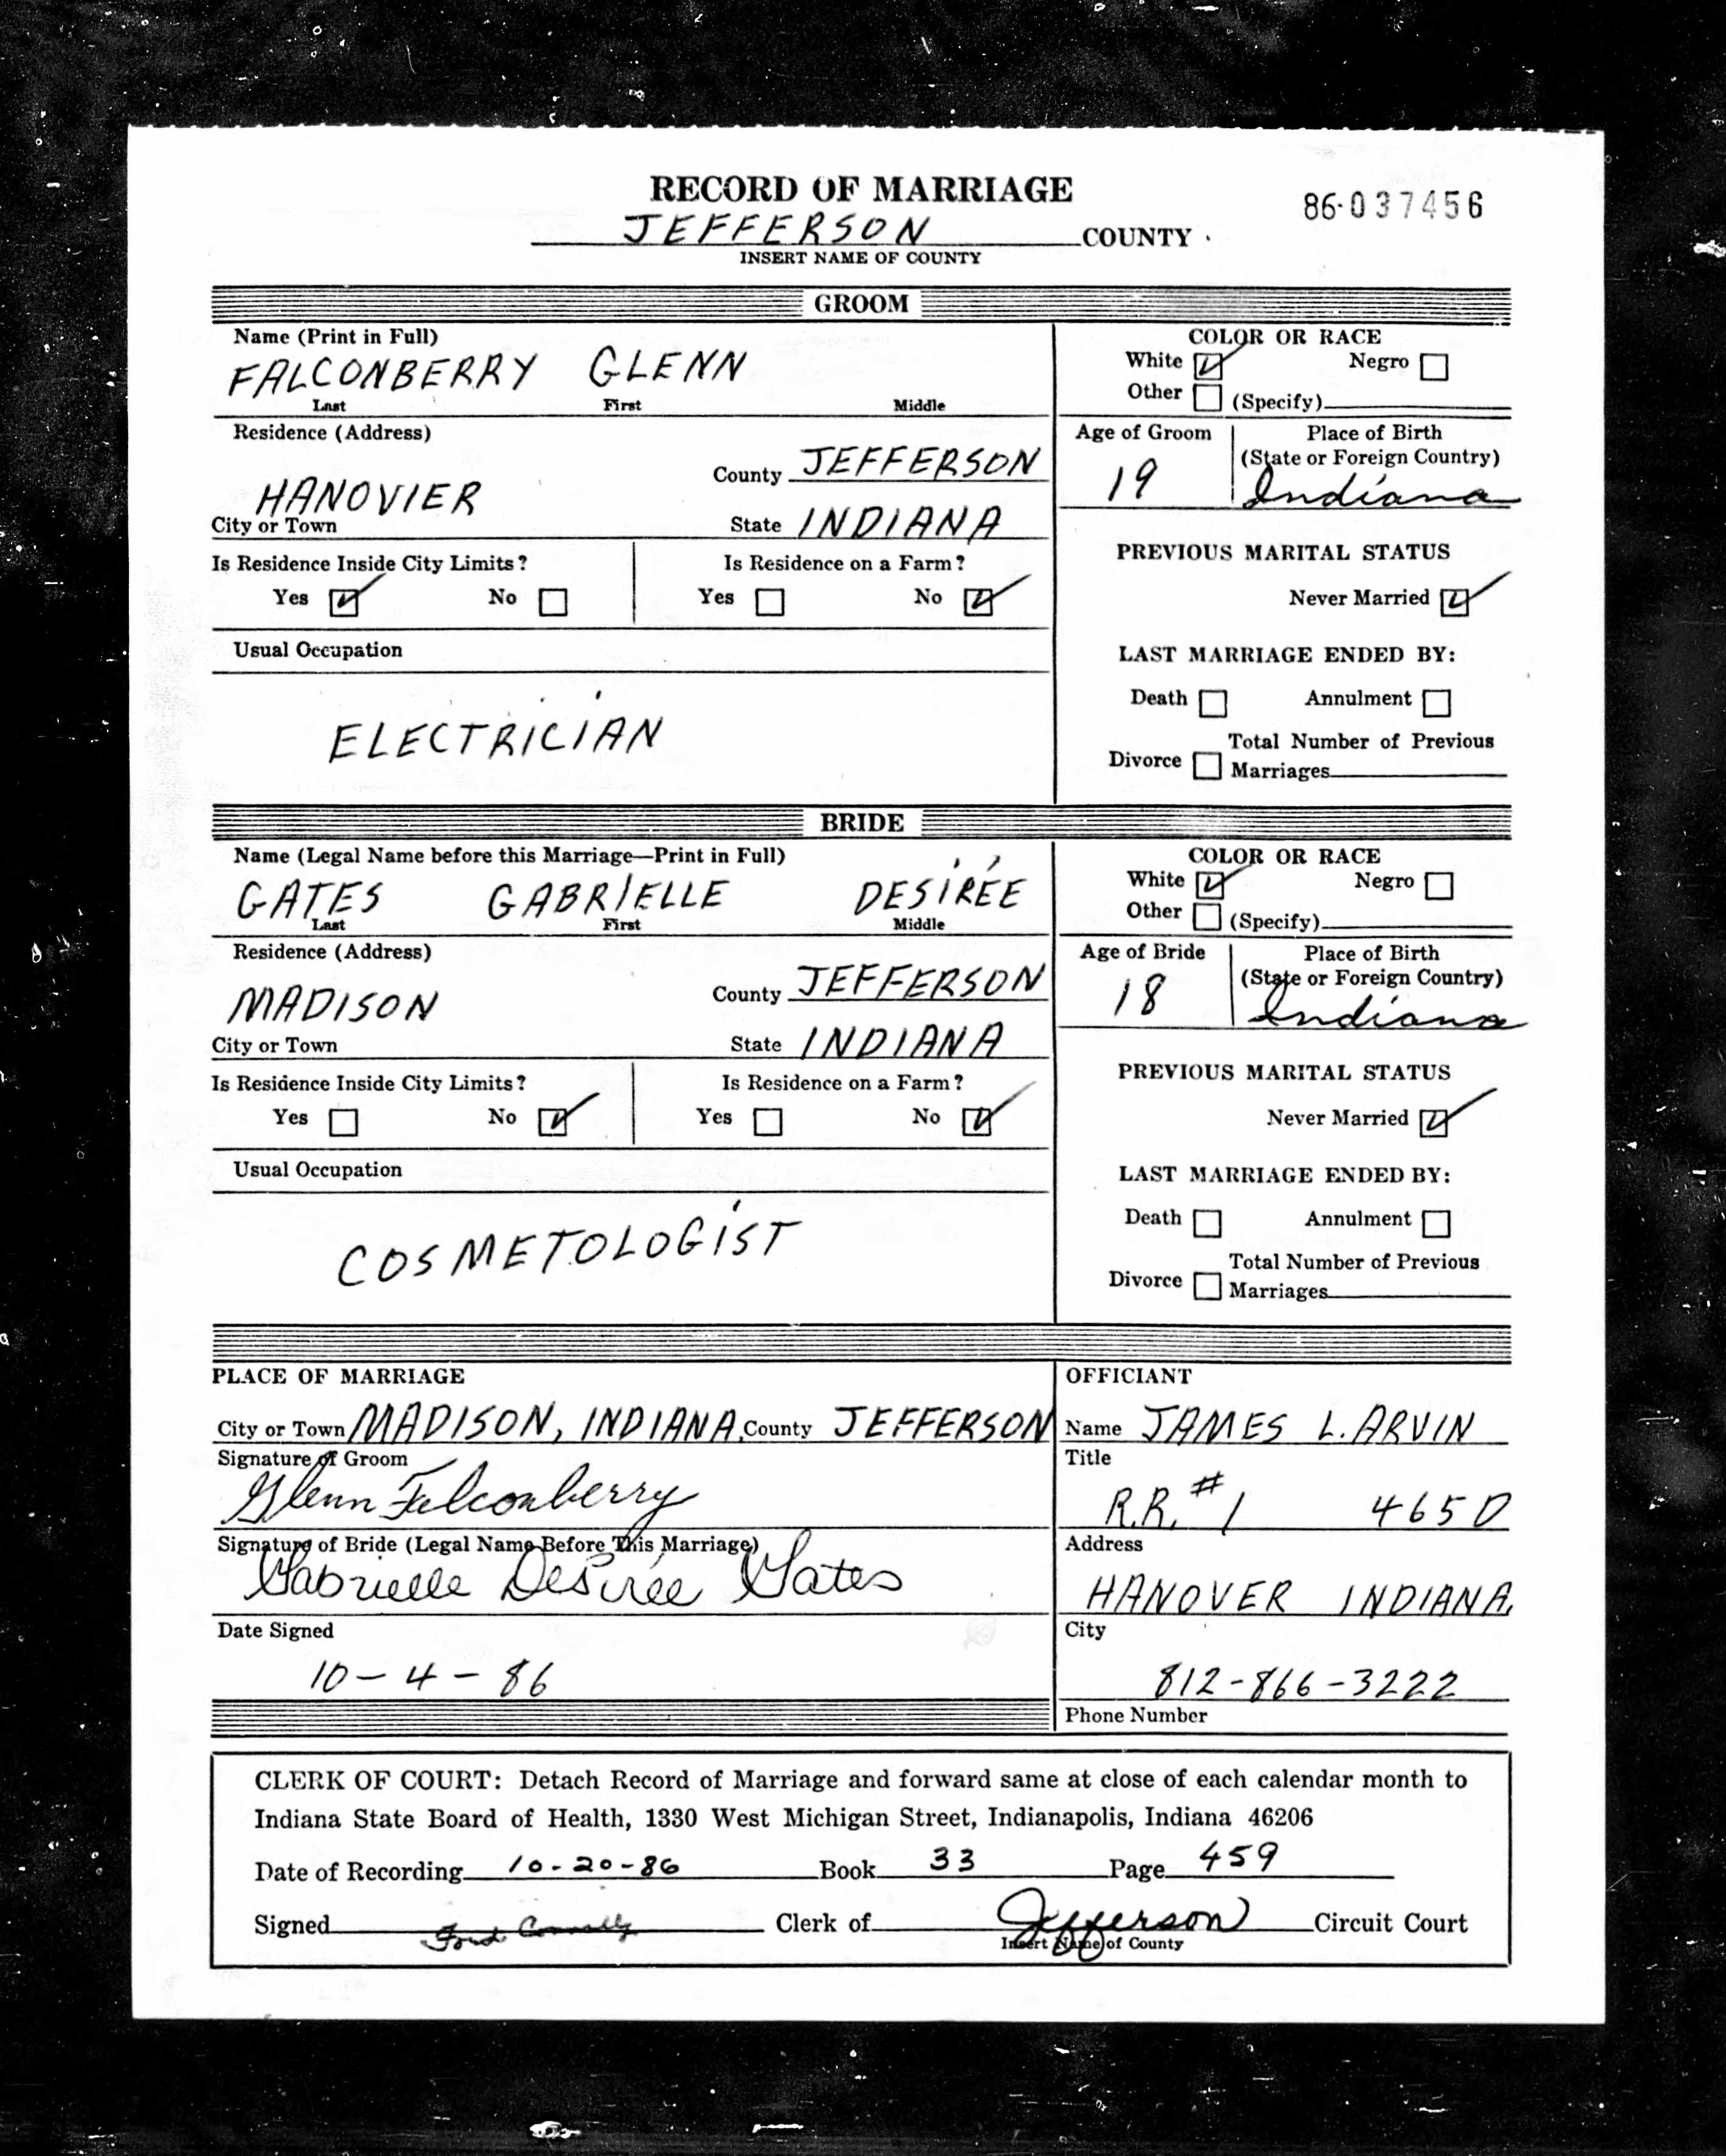 RECORD OF MARRIAGE
86-037456
JEFFERSON COUNTY
INSERT NAME OF COUNTY
GROOM
Name (Print in Full)
FALCONBERRY GLENN
Last First Middle
COLOR OR RACE
White ☑ Negro ☐
Other ☐ (Specify)
Residence (Address)
County JEFFERSON
HANOVIER
City or Town
State INDIANA
Age of Groom
19
Place of Birth
(State or Foreign Country)
Indiana
Is Residence Inside City Limits?
Yes ☑ No ☐
Is Residence on a Farm?
Yes ☐ No ☑
PREVIOUS MARITAL STATUS
Never Married ☑
Usual Occupation
ELECTRICIAN
LAST MARRIAGE ENDED BY:
Death ☐ Annulment ☐
Divorce ☐ Total Number of Previous
Marriages
BRIDE
Name (Legal Name before this Marriage—Print in Full)
GATES GABRIELLE DESIRÉE
Last First Middle
COLOR OR RACE
White ☑ Negro ☐
Other ☐ (Specify)
Residence (Address)
County JEFFERSON
MADISON
City or Town
State INDIANA
Age of Bride
18
Place of Birth
(State or Foreign Country)
Indiana
Is Residence Inside City Limits?
Yes ☐ No ☑
Is Residence on a Farm?
Yes ☐ No ☑
PREVIOUS MARITAL STATUS
Never Married ☑
Usual Occupation
COSMETOLOGIST
LAST MARRIAGE ENDED BY:
Death ☐ Annulment ☐
Divorce ☐ Total Number of Previous
Marriages
PLACE OF MARRIAGE
City or Town MADISON, INDIANA County JEFFERSON
Signature of Groom
Glenn Falconberry
Signature of Bride (Legal Name Before This Marriage)
Gabrielle Desirée Gates
Date Signed
10-4-86
OFFICIANT
Name JAMES L. ARVIN
Title
R.R. #1 465D
Address
HANOVER INDIANA,
City
812-866-3222
Phone Number
CLERK OF COURT: Detach Record of Marriage and forward same at close of each calendar month to
Indiana State Board of Health, 1330 West Michigan Street, Indianapolis, Indiana 46206
Date of Recording 10-20-86 Book 33 Page 459
Signed Clerk of Jefferson Circuit Court
Insert Name of County